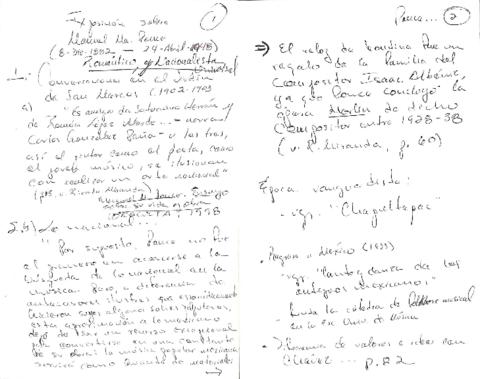 Exposición sobre
Manuel Ma. Ponce
(8-Dic-1882 — 24-Abril-1948)
Romántico y Nacionalista
Universal
1.- Conversaciones en el Jardín
de San Marcos (1902-1903
a) "Es amigo de Saturnino Herrán y
de Ramón López Velarde... - narra
Carlos González Peña - y los tres,
así el pintor como el poeta, como
el joven músico, se ilusionan
con realizar un arte nacional"
(v. Ricardo Miranda)
Manuel M. Ponce. Ensayo
sobre su vida y obra
1998
Lo nacional...
"Por supuesto, Ponce no fue
el primero en acercarse a la
búsqueda de lo nacional en la
música. Pero, a diferencia de
antecesores ilustres que esporádicamente
hicieron
esta aproximación a lo mexicano
dejó de ser un recurso ocasional
para convertirse en una constante
de su obra: la música popular mexicana
sirvió como fuente de materiales
1
Ponce... 2
⇒) El reloj de fue un
regalo de la familia del
compositor Isaac Albéniz,
ya que Ponce concluyó la
ópera Merlin de dicho
compositor entre 1928-38
(v. R. Miranda, p. 60)
Época vanguardista:
- vgr. "Chapultepec"
• Regreso a México (1933)
- vgr. "Canto y danza de los
antiguos mexicanos"
- la cátedra de folklore musical
en la
• de valores e ideas con
Chávez ... p. 82